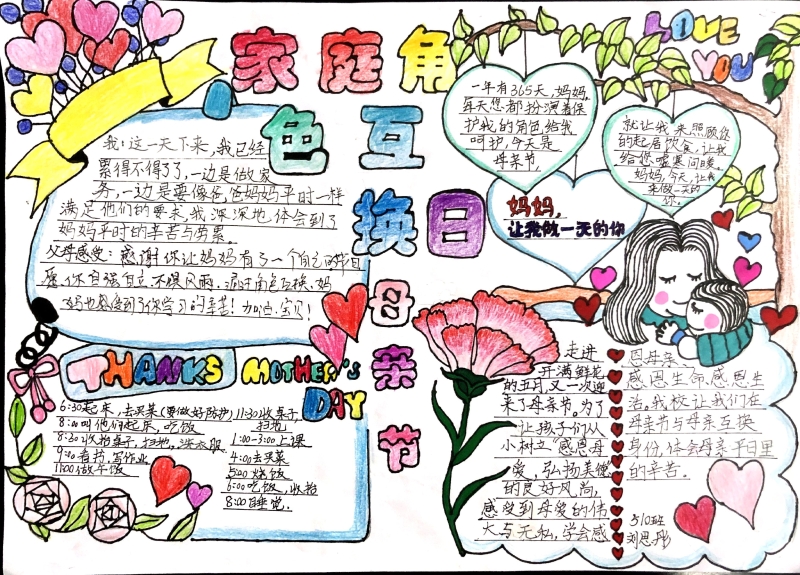 家庭角
色互
换日
母亲节
LOVE
YOU
一年有365天,妈妈,
每天您都扮演着保
护我的角色,给我
呵护,今天是
母亲节,
就让我来照顾您
的起居饮食,让我
给您嘘寒问暖。
妈妈,今天,让我
来做一天的
你.
妈妈,
让我做一天的你
我:这一天下来,我已经
累得不得了了,一边是做家
务,一边是要像爸爸妈妈平时一样
满足他们的要求,我深深地体会到了
妈妈平时的辛苦与劳累。
父母感受:感谢你让妈妈有了一个自己的节日
愿你自强自立,不畏风雨,通过角色互换,妈
妈也感受到了你学习的辛苦!加油,宝贝!
THANKS MOTHER'S
DAY
6:30起来,去买菜(要做好防护)
8:00叫他们起床,吃饭
8:30收拾桌子,扫地,洗衣服
9:00看书,写作业
11:00做午饭
11:30收桌子,
扫地
1:00-3:00上课
4:00去买菜
5:00烧饭
6:00吃饭,收拾
8:00睡觉.
走进
开满鲜花
的五月,又一次迎
来了母亲节,为了
让孩子们从
小树立“感恩母
爱,弘扬美德”
的良好风尚,
感受到母爱的伟
大与无私,学会感
恩母亲、
感恩生命、感恩生
活,我校让我们在
母亲节与母亲互换
身份,体会母亲平日里
的辛苦。
510班
刘思彤